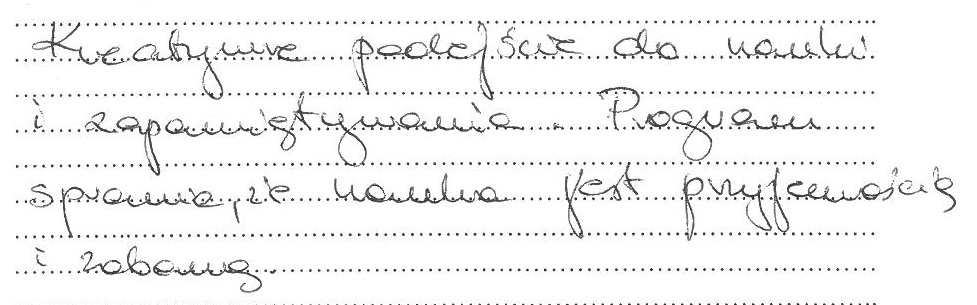 Kreatywne podejście do nauki
i zapamiętywania. Program
sprawia, że nauka jest przyjemnością
i zabawą.